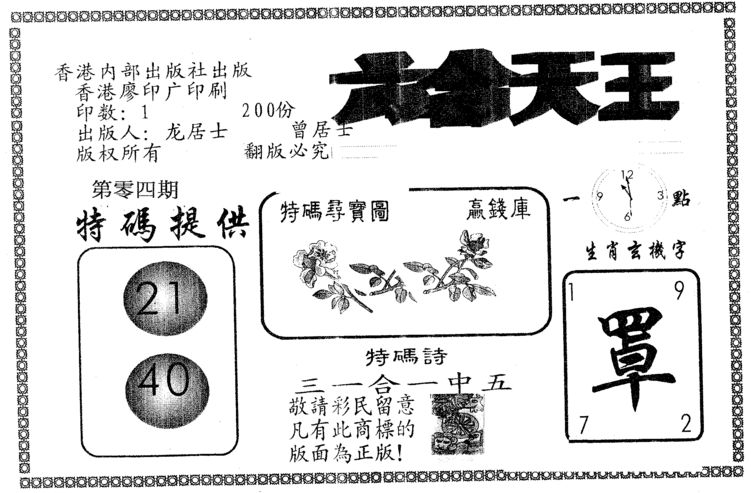 香港内部出版社出版
香港廖印广印刷
印数：1 200份
出版人：龙居士 曾居士
版权所有 翻版必究
六合天王
第零四期
特碼提供
21
40
特碼尋寶圖 贏錢庫
特碼詩
三一合一中五
敬請彩民留意
凡有此商標的
版面為正版！
一 點
12
9 3
6
生肖玄機字
1 9
罩
7 2